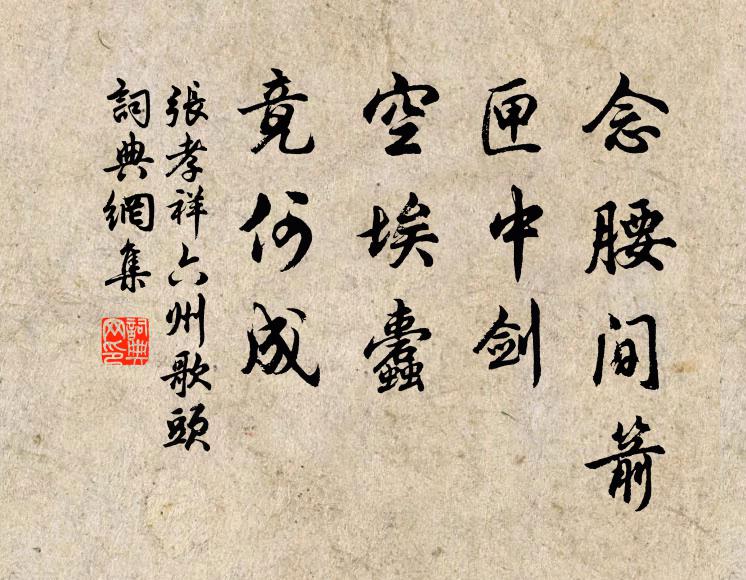 念腰間箭
匣中剑
空埃蠹
竟何成
張孝祥六州歌頭
詞典網集
詞典
网印